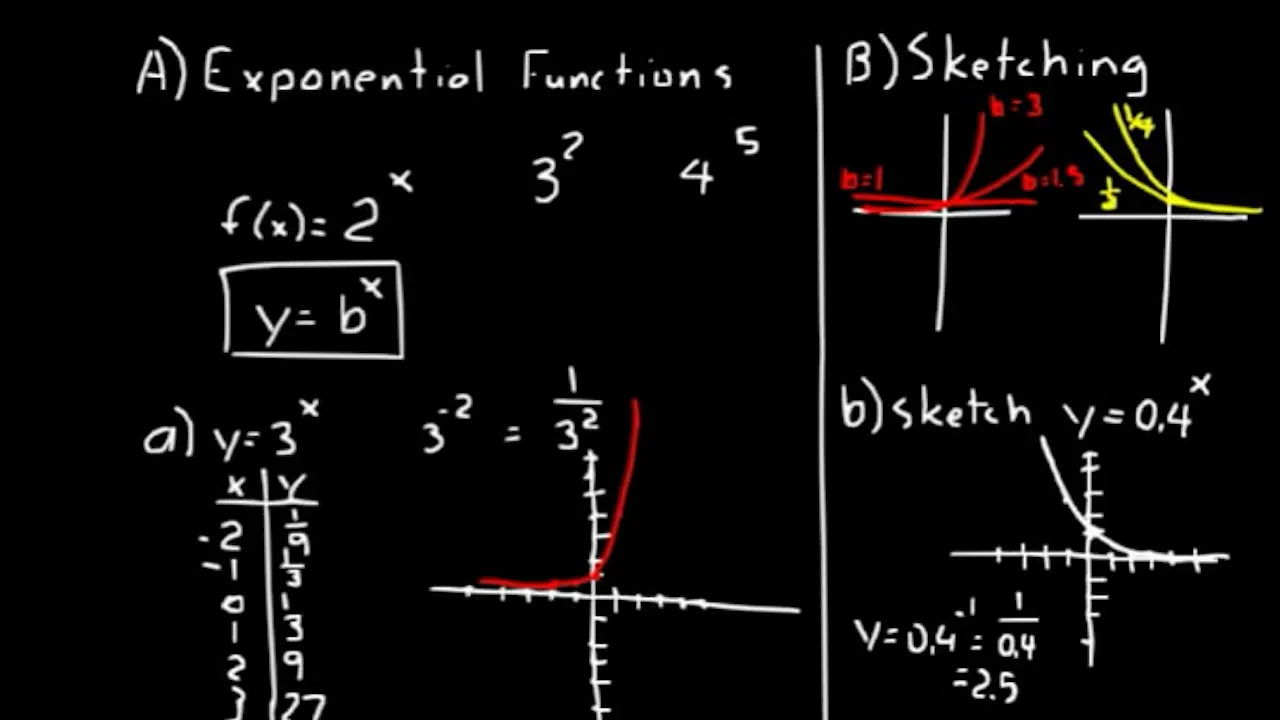 A) Exponential Functions
3² 4⁵
f(x) = 2ˣ
y = bˣ
a) y = 3ˣ 3⁻² = 1/3²
x | y
-2 | 1/9
-1 | 1/3
0 | 1
1 | 3
2 | 9
3 | 27
B) Sketching
b=3
b=1
b=1.5
1/4
b) sketch y = 0.4ˣ
y = 0.4⁻¹ = 1/0.4
= 2.5